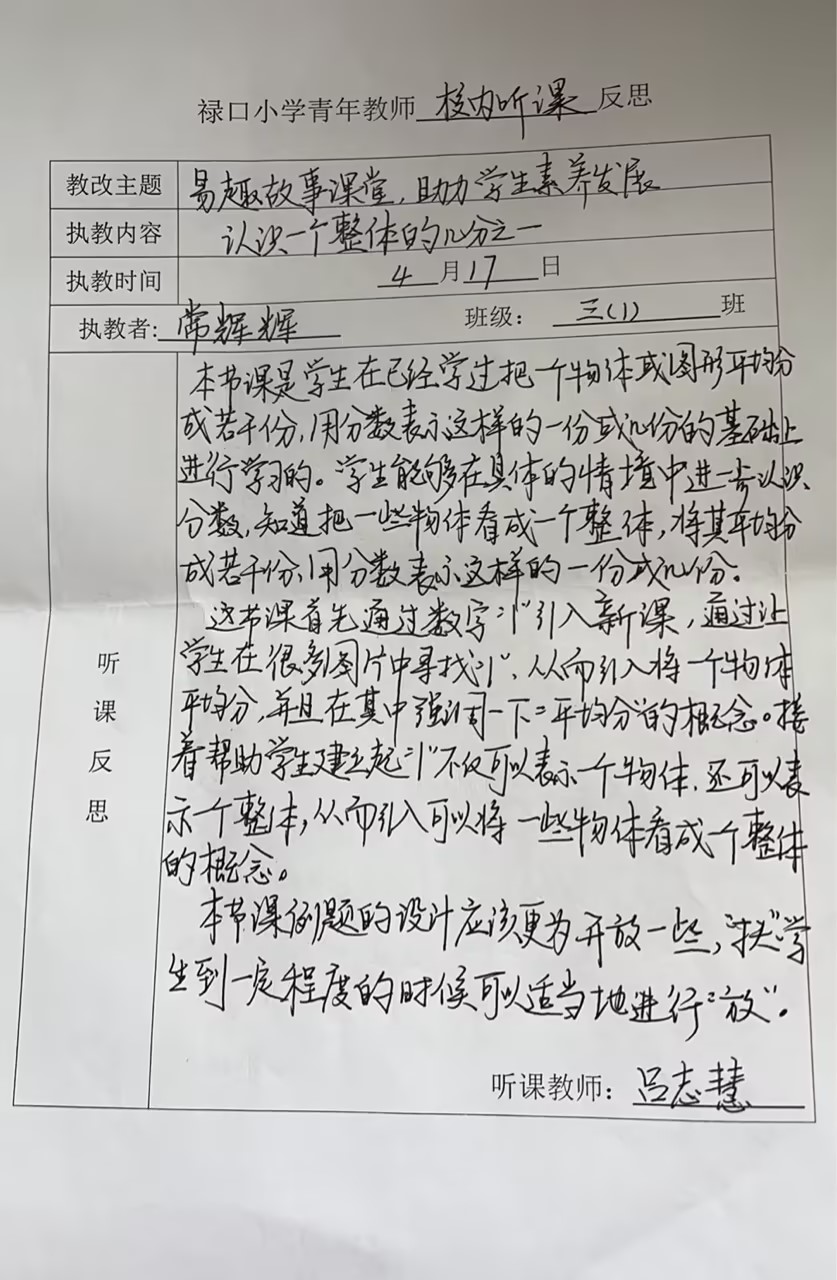 禄口小学青年教师 校内听课 反思
教改主题 易趣故事课堂，助力学生素养发展
执教内容 认识一个整体的几分之一
执教时间 4 月 17 日
执教者: 常辉辉 班级： 三(1) 班
听课反思
本节课是学生在已经学过把一个物体或图形平均分
成若干份，用分数表示这样的一份或几份的基础上
进行学习的。学生能够在具体的情境中进一步认识
分数，知道把一些物体看成一个整体，将其平均分
成若干份，用分数表示这样的一份或几份。
这节课首先通过数字“1”引入新课，通过让
学生在很多图片中寻找“1”，从而引入将一个物体
平均分，并且在其中强调一下“平均分”的概念。接
着帮助学生建立起“1”不仅可以表示一个物体，还可以表
示一个整体，从而引入可以将一些物体看成一个整体
的概念。
本节课例题的设计应该更为开放一些，“扶”学
生到一定程度的时候可以适当地进行“放”。
听课教师： 吕志慧